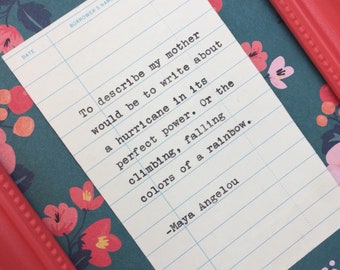 DATE BORROWER'S NAME
To describe my mother
would be to write about
a hurricane in its
perfect power. Or the
climbing, falling
colors of a rainbow.
-Maya Angelou